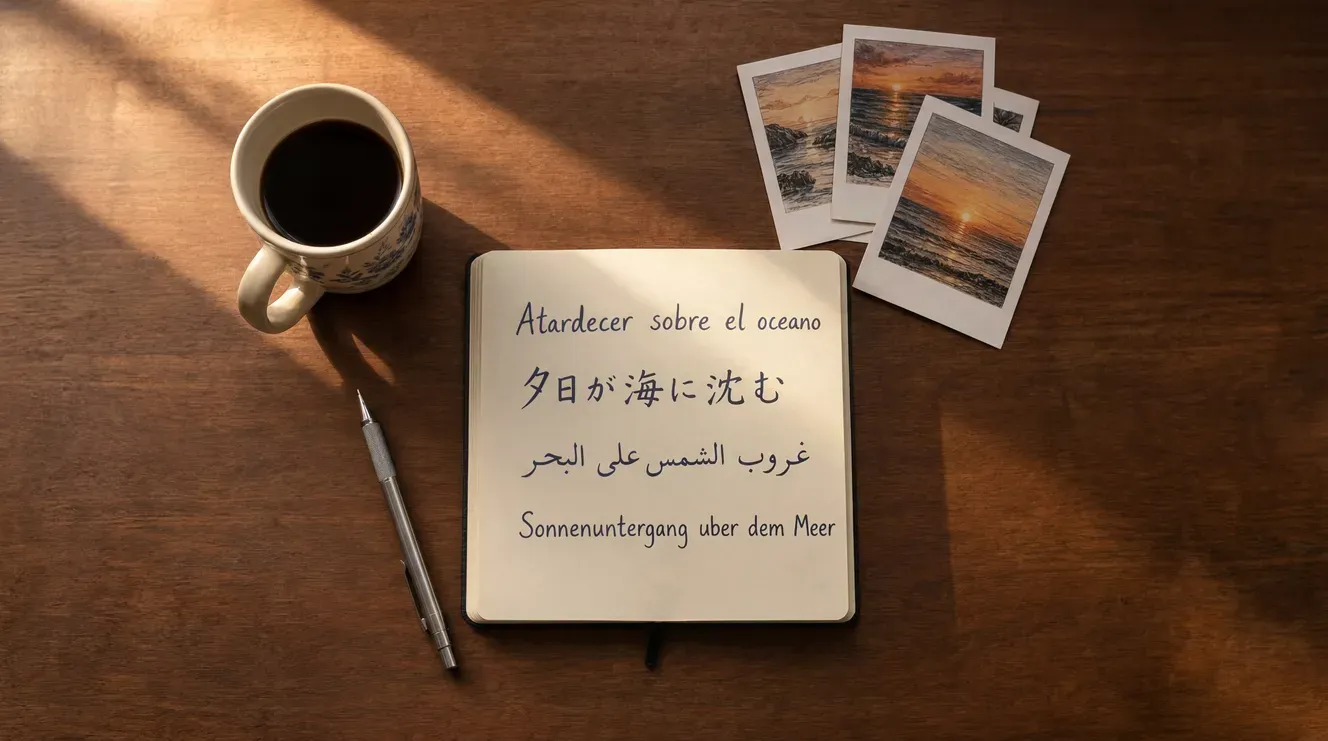 Atardecer sobre el oceano
夕日が海に沈む
غروب الشمس على البحر
Sonnenuntergang uber dem Meer